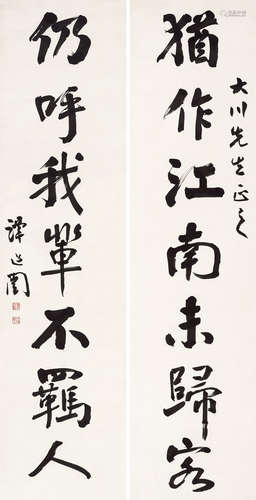 大川先生正之
猶作江南未歸客
仍呼我輩不羈人
譚延闓